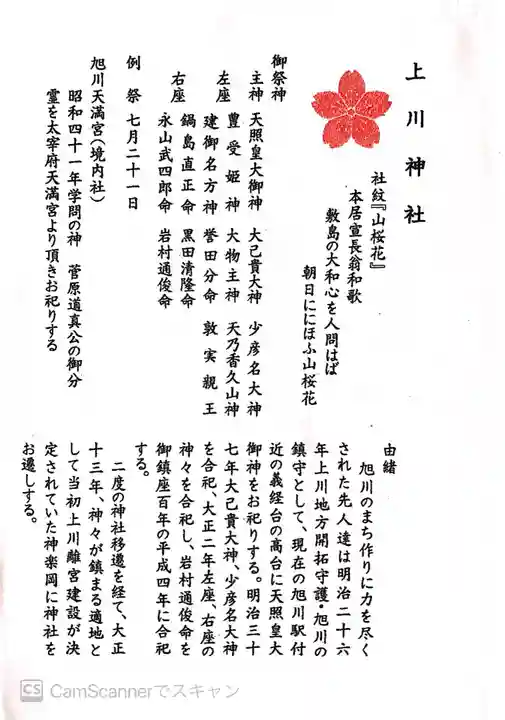 上川神社
社紋『山桜花』
本居宣長翁和歌
敷島の大和心を人問はば
朝日ににほふ山桜花
御祭神
主神 天照皇大御神 大己貴大神 少彦名大神
左座 豊受姫神 大物主神 天乃香久山神
建御名方神 誉田分命 敦実親王
右座 鍋島直正命 黒田清隆命
永山武四郎命 岩村通俊命
例祭 七月二十一日
旭川天満宮(境内社)
昭和四十一年学問の神 菅原道真公の御分
霊を太宰府天満宮より頂きお祀りする
由緒
旭川のまち作りに力を尽く
された先人達は明治二十六
年上川地方開拓守護・旭川の
鎮守として、現在の旭川駅付
近の義経台の高台に天照皇大
御神をお祀りする。明治三十
七年大己貴大神、少彦名大神
を合祀、大正二年左座、右座の
神々を合祀し、岩村通俊命を
御鎮座百年の平成四年に合祀
する。
二度の神社移遷を経て、大正
十三年、神々が鎮まる適地と
して当初上川離宮建設が決
定されていた神楽岡に神社を
お遷しする。
CS CamScannerでスキャン